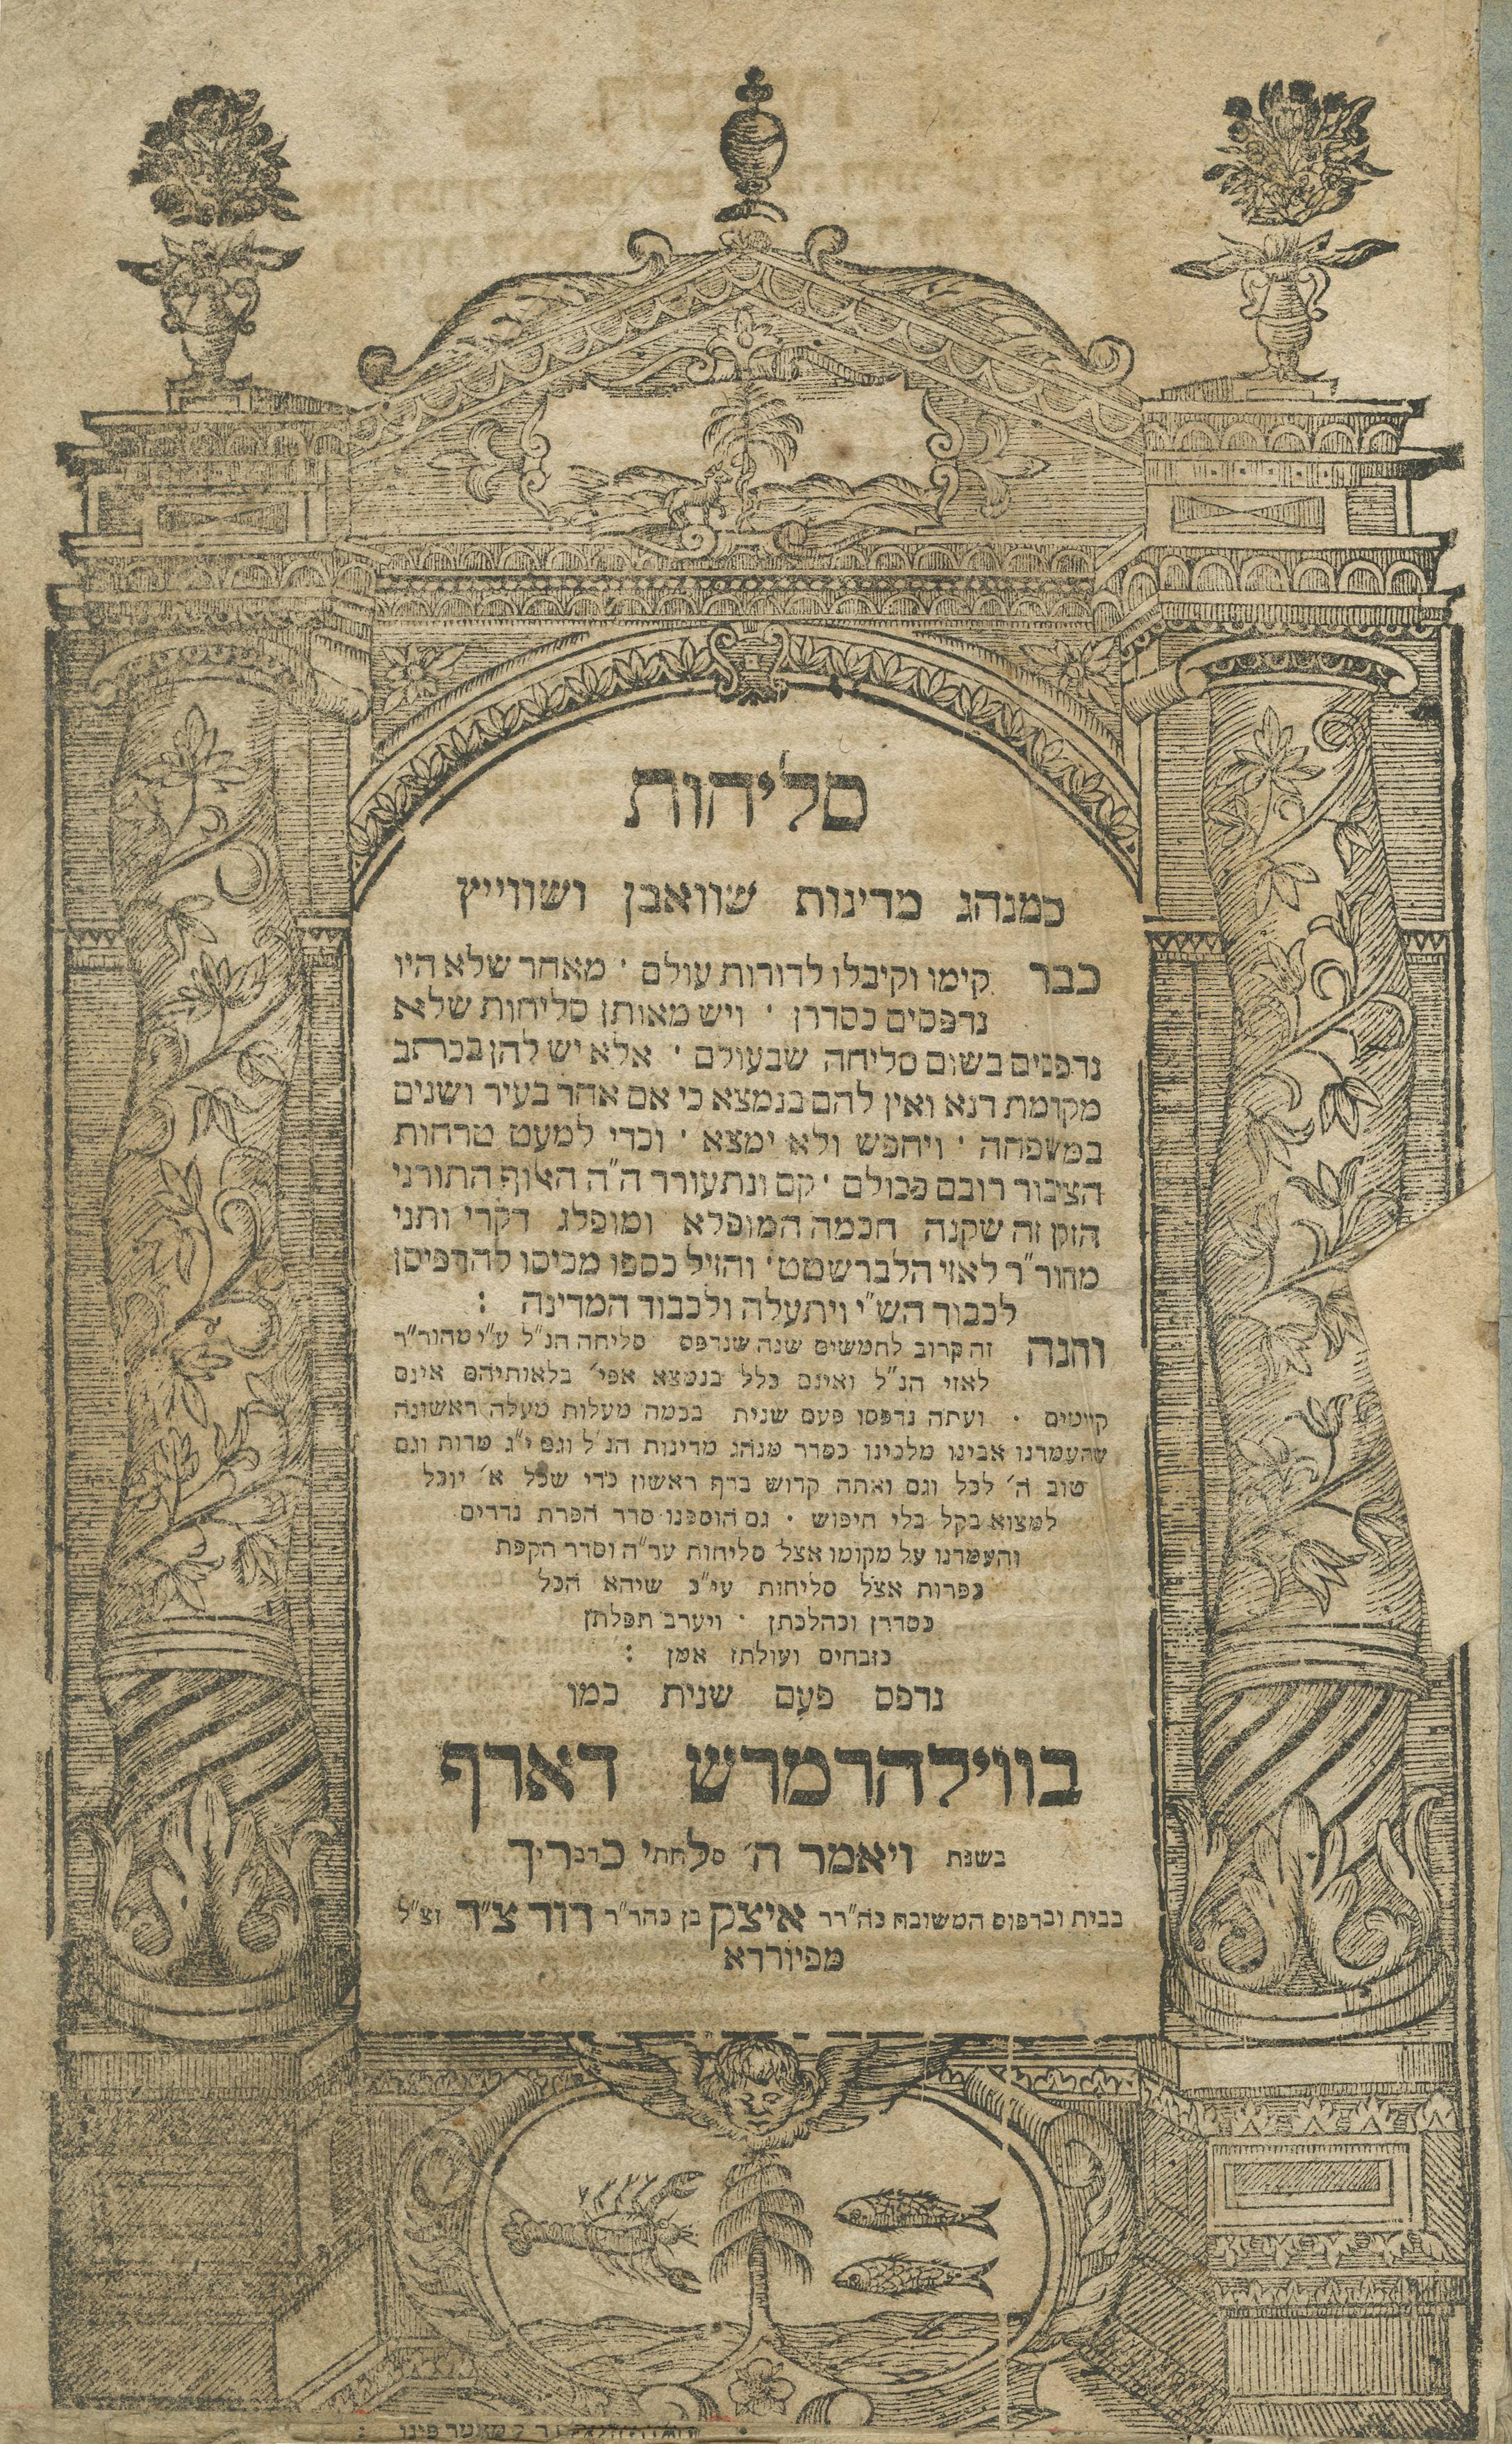 סליחות
כמנהג מדינות שוואבן ושווייץ
כבר קימו וקיבלו לדורות עולם · מאחר שלא היו
נדפסים כסדרן · ויש מאותן סליחות שלא
נדפסים בשום סליחה שבעולם · אלא יש להן בכתב
מקדמת דנא ואין להם בנמצא כי אם אחד בעיר ושנים
במשפחה · ויחפש ולא ימצא · וכדי למעט טרחות
הציבור רובם ככולם · קם ונתעורר ה"ה האלוף התורני
הזקן זה שקנה חכמה המופלא ומופלג דקרי ותני
מהור"ר לאזי הלברשטט · והזיל כספו מכיסו להדפיסן
לכבוד הש"י ויתעלה ולכבוד המדינה :
והנה זה קרוב לחמשים שנה שנדפס סליחה הנ"ל ע"י מהור"ר
לאזי הנ"ל ואינם כלל בנמצא אפי' בלאותיהם אינם
קיימים · ועתה נדפסו פעם שנית בכמה מעלות מעלה ראשונה
שהעמדנו אבינו מלכינו כסדר מנהג מדינות הנ"ל וגם י"ג מדות וגם
טוב ה' לכל וגם ואתה קדוש בדף ראשון כדי שכל א' יוכל
למצוא בקל בלי חיפוש · גם הוספנו סדר הפרת נדרים
והעמדנו על מקומו אצל סליחות ער"ה וסדר הקפת
כפרות אצל סליחות עי"כ שיהא הכל
כסדרן וכהלכתן · ויערב תפלתן
כזבחים ועולתו אמן :
נדפס פעם שנית כמו
בווילהרמרש דארף
בשנת ויאמר ה' סלחתי כדבריך
בבית ובדפוס המשובח כה"רר איצק בן כהר"ר דוד צ"ד זצ"ל
מפיורדא